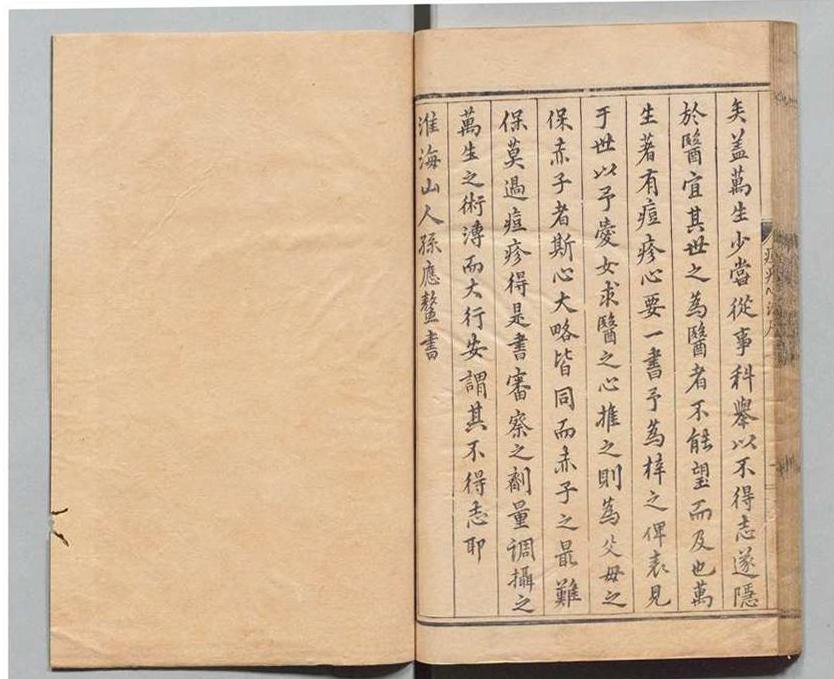 矣盖萬生少嘗從事科舉以不得志遂隱
於醫宜其世之為醫者不能望而及也萬
生著有痘疹心要一書予為梓之俾表見
于世以予愛女求醫之心推之則為父母之
保赤子者斯心大略皆同而赤子之最難
保莫過痘疹得是書審察之劑量調攝之
萬生之術溥而大行安謂其不得志耶
淮海山人孫應鳌書